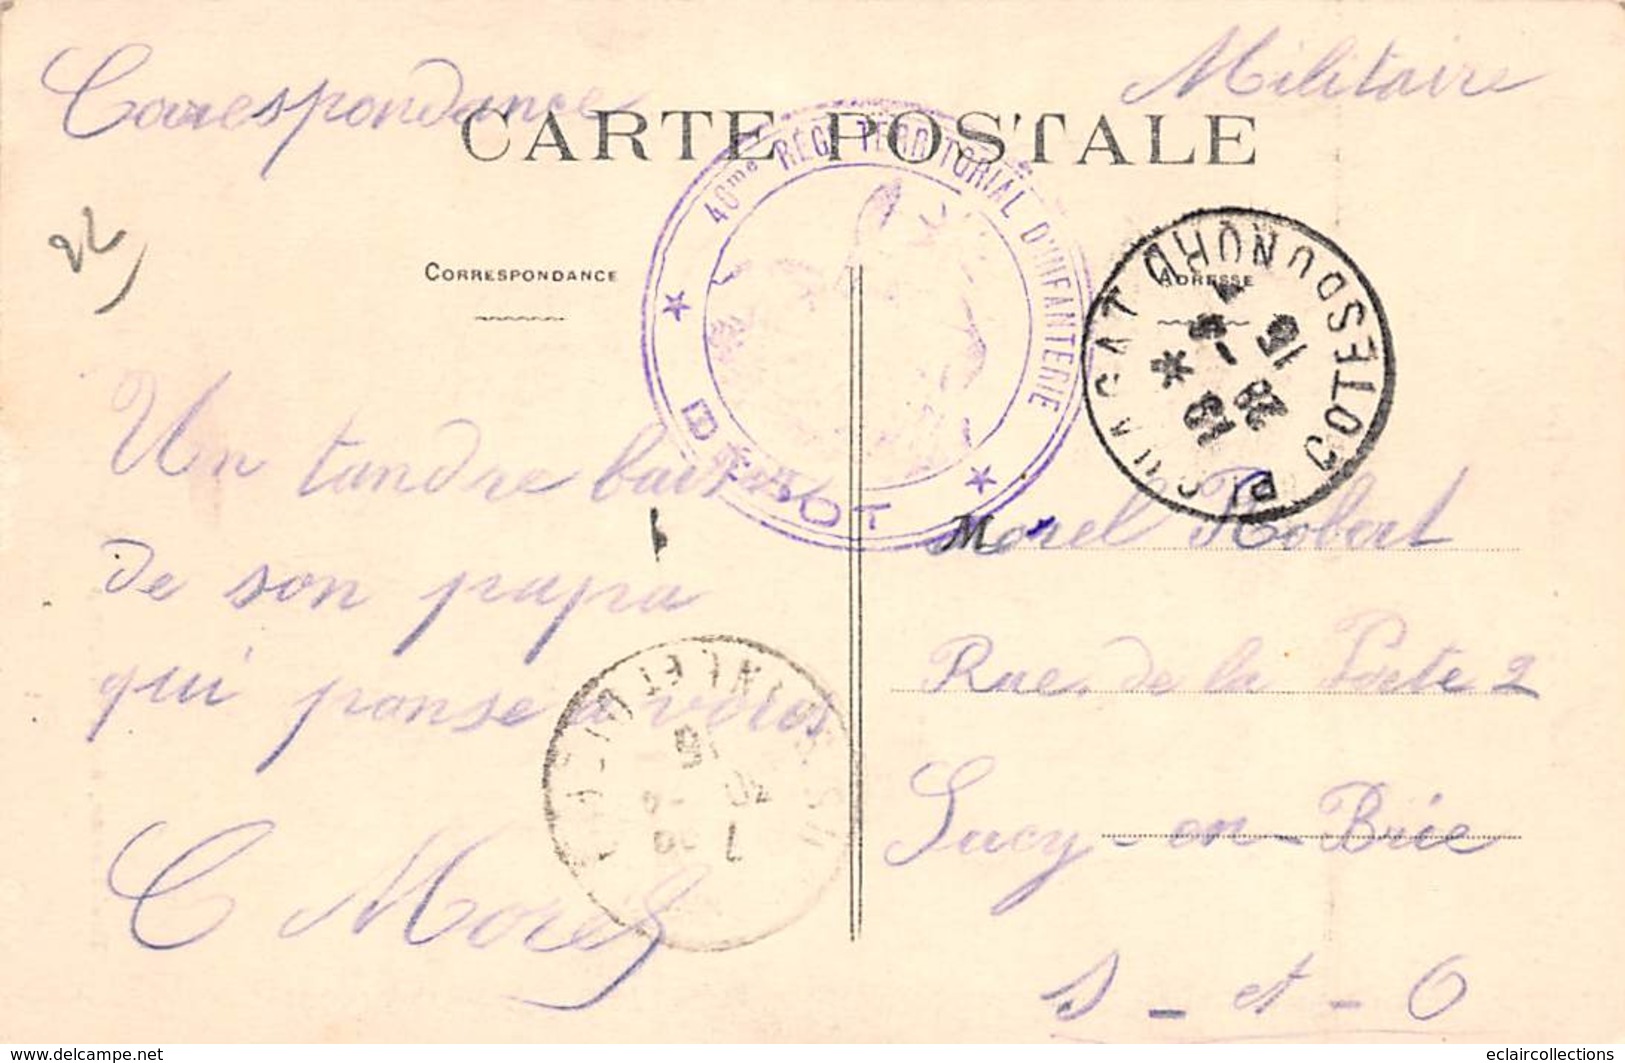 Correspondance Militaire
CARTE POSTALE
40me RÉGT TERRITORIAL D'INFANTERIE
DÉPOT
CORRESPONDANCE
ADRESSE
22
COTES DU NORD
19
28 -4
15
Un tandre baiser
de son papa
qui panse a vous
C Morel
SEINE ET OISE
7 30
30 -4
15
M Morel Robert
Rue de la Porte 2
Sucy-en-Brie
S-et-O
www.delcampe.net
eclaircollections